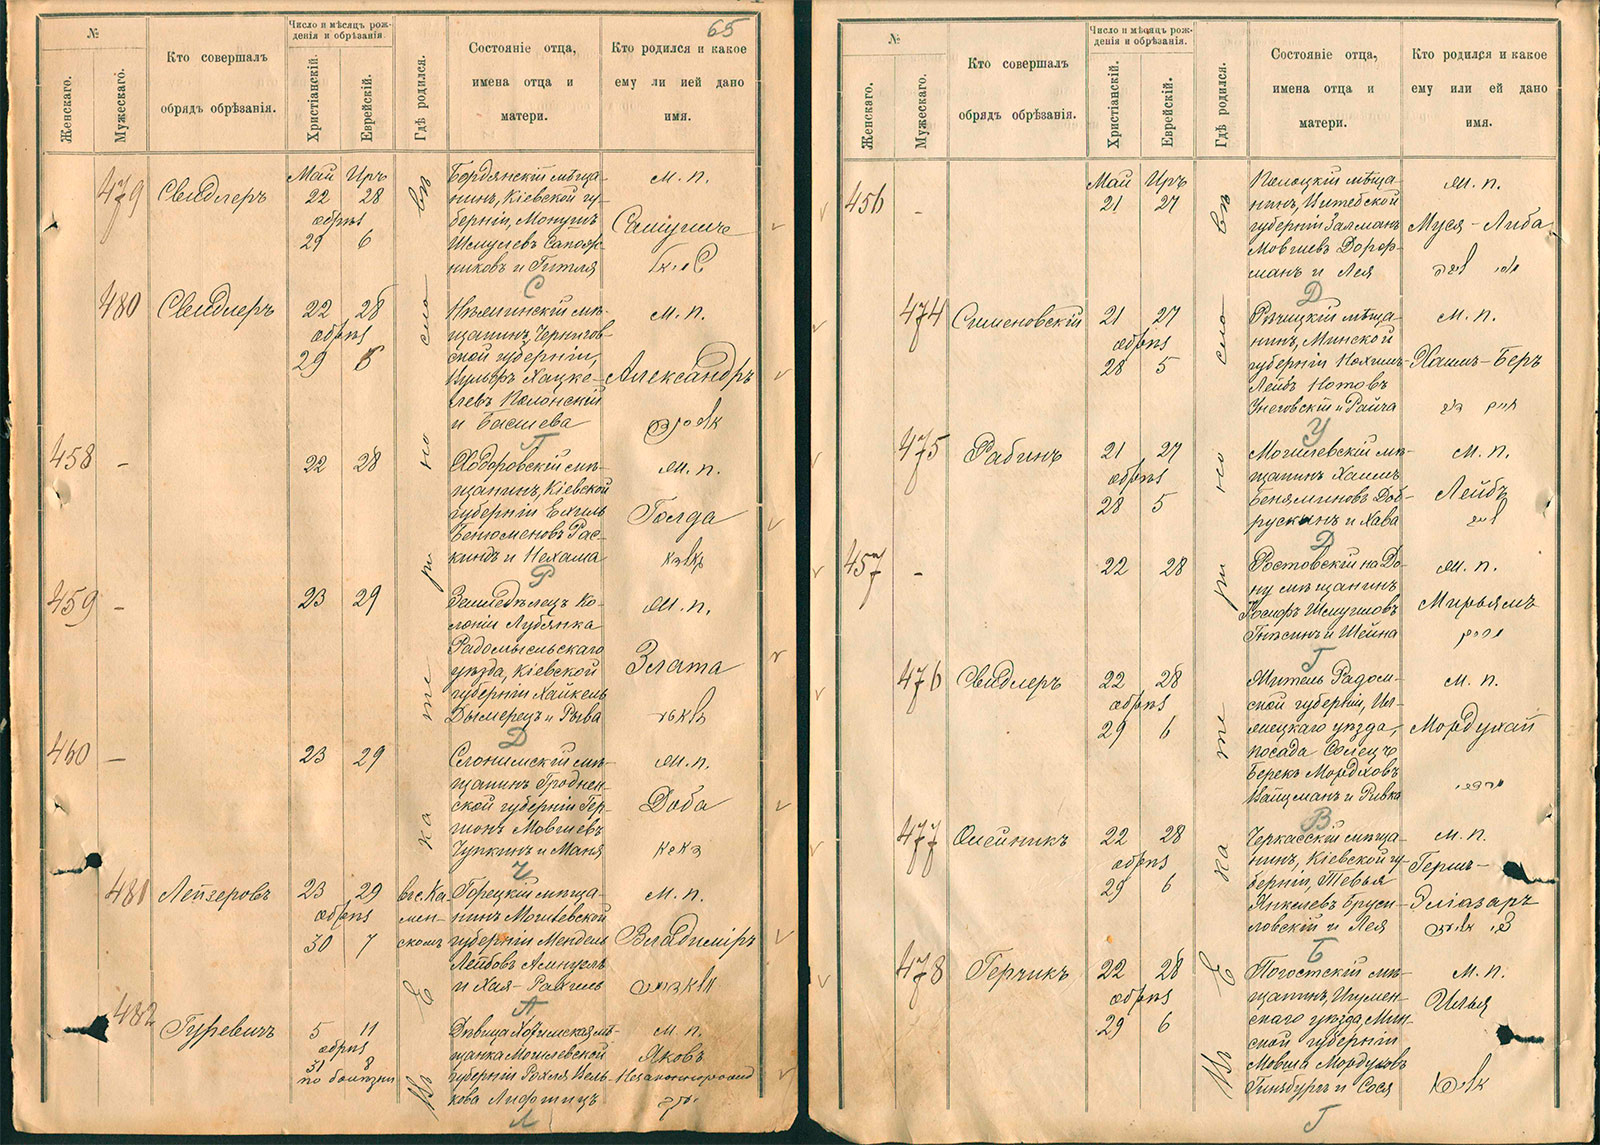 65
№
Женскаго.
Мужескаго.
Кто совершалъ
обрядъ обрѣзанія.
Число и мѣсяцъ рож-
денія и обрѣзанія.
Христіанскій.
Еврейскій.
Гдѣ родился.
Состояніе отца,
имена отца и
матери.
Кто родился и какое
ему ли ией дано
имя.
479
Свидлеръ
Май Иръ
22 28
обрѣз
29 6
мѣща-
нинъ, Кіевской гу-
берніи,
Шмулевъ
никовъ и Гитля
м. п.
С
480
Свидлеръ
22 28
обрѣз
29 6
щанинъ, Чернигов-
ской губерніи,
Хацке-
левъ Полонскій
и Башева
м. п.
Александръ
П
458 –
22 28
Ходоровскій мѣ-
щанинъ, Кіевской
губерніи Ехиль
Рас-
кинъ и Нехама
м. п.
Голда
Р
459 –
23 29
Земледѣлецъ ко-
лоніи Лубянка
Радомысльскаго
уѣзда, Кіевской
губерніи Хайкель
Дымерецъ и Рыва
м. п.
Злата
Д
460 –
23 29
Слонимскій мѣ-
щанинъ Гроднен-
ской губерніи Гер-
шонъ Мовшевъ
Чупкинъ и Маня
м. п.
Доба
Ч
481
Лейзеровъ
23 29
обрѣз
30 7
въ с. Ка
мен-
скомъ
Горецкій мѣща-
нинъ Могилевской
губерніи Мендель
Лейбовъ
и Хая-Рахиль
м. п.
Владиміръ
А
482
Гуревичъ
5 11
обрѣз
31 8
по болѣзни
Дѣвица мѣ-
щанка Могилевской
губерніи Рохля
кова Лифшицъ
м. п.
Яковъ
Незаконнорожд
Л
Въ Екатеринославѣ
№
Женскаго.
Мужескаго.
Кто совершалъ
обрядъ обрѣзанія.
Число и мѣсяцъ рож-
денія и обрѣзанія.
Христіанскій.
Еврейскій.
Гдѣ родился.
Состояніе отца,
имена отца и
матери.
Кто родился и какое
ему или ей дано
имя.
456 –
Май Иръ
21 27
Полоцкій мѣща-
нинъ, Витебской
губерніи Залманъ
Мовшевъ Дорф-
манъ и Лея
м. п.
Муся-Либа
Д
474
Симоновскій
21 27
обрѣз
28 5
Рѣчицкій мѣща-
нинъ, Минской
губерніи Нохимъ-
Лейбъ Нотовъ
и Райча
м. п.
Хаимъ-Беръ
У
475
Рабинъ
21 27
обрѣз
28 5
Могилевскій мѣ-
щанинъ Хаимъ
Беняминовъ Доб-
рускинъ и Хава
м. п.
Лейбъ
Д
457 –
22 28
Ростовскій на До-
ну мѣщанинъ
Іосифъ Шмуиловъ
Гнѣсинъ и Шейна
м. п.
Мирьямъ
Г
476
Свидлеръ
22 28
обрѣз
29 6
Житель Радом-
ской губерніи,
уѣзда,
посада
Берекъ Мордховъ
Вайцманъ и Ривка
м. п.
Мордухай
В
477
Олейникъ
22 28
обрѣз
29 6
Черкасскій мѣща-
нинъ, Кіевской гу-
берніи, Тевья
Янкелевъ Бруси-
ловскій и Лея
м. п.
Гершъ-
Эліазаръ
Б
478
Герчикъ
22 28
обрѣз
29 6
Погостскій мѣ-
щанинъ, Игумен-
скаго уѣзда, Мин-
ской губерніи
Мовша Мордуховъ
Гинзбургъ и Сося
м. п.
Илья
Г
Въ Екатеринославѣ